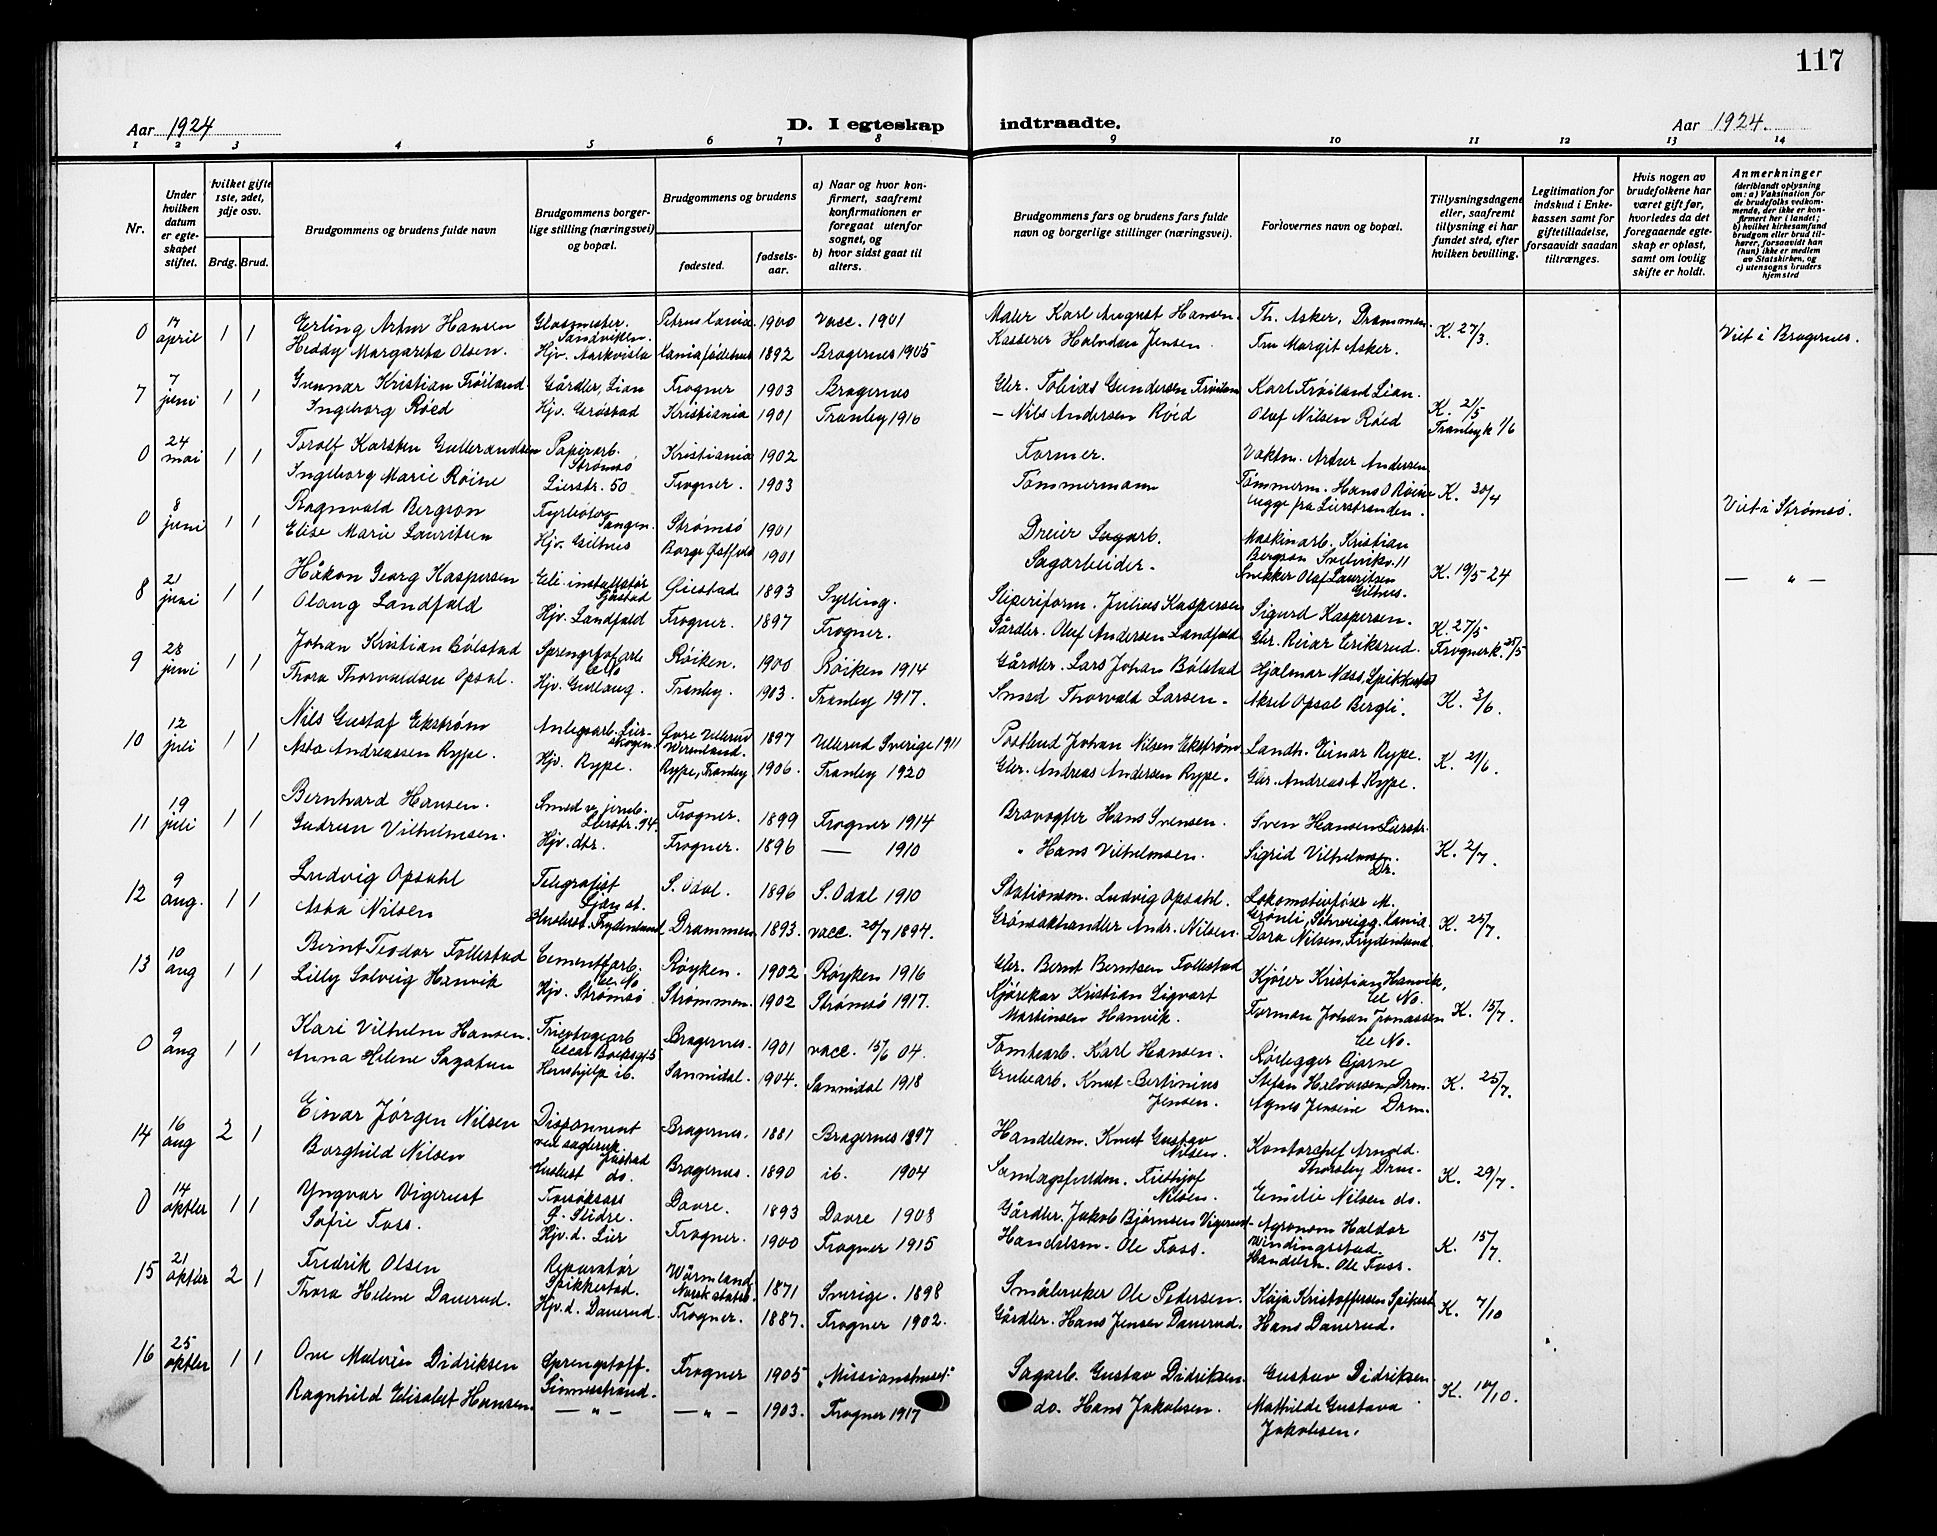 117
Aar 1924
D. I egteskap indtraadte.
Aar 1924.
1 2 3 4 5 6 7 8 9 10 11 12 13 14
Nr.
Under hvilken datum er egteskapet stiftet.
hvilket gifte 1ste, 2det, 3dje osv.
Brdg. Brud.
Brudgommens og brudens fulde navn
Brudgommens borgerlige stilling (næringsvei) og bopæl.
Brudgommens og brudens
fødested.
fødselsaar.
a) Naar og hvor konfirmert, saafremt konfirmationen er foregaat utenfor sognet, og
b) hvor sidst gaat til alters.
Brudgommens fars og brudens fars fulde navn og borgerlige stillinger (næringsvei).
Forlovernes navn og bopæl.
Tillysningsdagene eller, saafremt tillysning ei har fundet sted, efter hvilken bevilling.
Legitimation for indskud i Enkekassen samt for giftetilladelse, forsaavidt saadan tiltrænges.
Hvis nogen av brudefolkene har været gift før, hvorledes da det foregaaende egteskap er opløst, samt om lovlig skifte er holdt.
Anmerkninger
(deriblandt oplysning om: a) Vaksination for de brudefolks vedkommende, der ikke er konfirmert her i landet; b) hvilket kirkesamfund brudgom eller brud tilhører, forsaavidt han (hun) ikke er medlem av Statskirken, og c) utensogns bruders hjemsted
0 17 april 1 1 Erling Artur Hansen Glasmester. Sandviken 1900 vacc. 1901 Maler Karl August Hansen. Th. Asker, Drammen K. 27/3. Viet i Bragernes.
Heddy Margareta Olsen. Hjv. 1892 Bragernes 1905 Kasserer Halvdan Jensen Fru Margit Asker.
7 7 juni 1 1 Gunnar Kristian Frøiland Gårdbr, Lian Frogner 1903 Bragernes Gbr. Tobias Gundersen Karl Frøiland Lian. K. 21/5
Ingeborg Røed Hjv. Grøstad Kristiania 1901 Tranby 1916 – Nils Andersen Røed Olaf Nilsen Røed Tranby k 1/6
0 24 mai 1 1 Torolf Karsten Gulbrandsen Papirarb. Strømsø Kristiania 1902 Former. Vaktm. Artur Andersen
Ingeborg Marie Røine Lierstr. 50 Frogner. 1903 Tømmermann Tømmerm. Hans O Røine K. 30/4
begge fra Lierstranden. Viet i Strømsø.
0 8 juni 1 1 Ragnvald Bergson Fyrbøter Tangen. Strømsø 1901 Dreier Sagarb. Maskinarb. Kristian Bergson Svelvikv. 11
Elise Marie Lauritsen Hjv. Gilhus Borge Østfold 1901 Sagarbeider. Snekker Olaf Lauritsen Gilhus. K. 19/5 24 — " —
8 21 juni 1 1 Håkon Georg Kaspersen Gjøstad Øiestad 1893 Sylling. Sliperiform. Julius Kaspersen Sigurd Kaspersen. K. 27/5
Olaug Landfald Hjv. Landfald Frogner. 1897 Frogner. Gårdbr. Oluf Andersen Landfald Gbr. Reiar Eriksrud. Frogner k. 25/5
9 28 juni 1 1 Johan Kristian Bølstad Røiken. 1900 Røiken 1914 Gårdbr. Lars Johan Bølstad Hjalmar Næss, Spikkestad
Thora Thorvaldsen Opsal. Hjv. Gullaug. Tranby. 1903. Tranby 1917. Smed Thorvald Larsen. Aksel Opsal Bergli. K. 3/6.
10 12 juli 1 1 Nils Gustaf Ekstrøm Anlegsarb. Lierskogen. Øvre Ullerud Wermland. 1897 Ullerud Sverige 1911 Postbud Johan Nilsen Ekstrøm Landh. Einar Rype.
Asta Andreassen Rype. Hjv. Rype. Rype, Tranby 1906. Tranby 1920 Gbr. Andreas Andersen Rype. Gbr. Andreas A Rype. K. 21/6.
11 19 juli 1 1 Bernhard Hansen. Smed v. jernb. Lierstr. 94. Frogner. 1899 Frogner 1914 Brovogter Hans Svensen. Sven Hansen Lierstr.
Gudrun Vilhelmsen. Hjv. dtr. Frogner. 1896 — 1910 " Hans Vilhelmsen. Sigrid Vilhelmsen. Dr. K. 2/7.
12 9 aug. 1 1 Ludvig Opsahl Telegrafist Lier st. S. Odal. 1896 S. Odal 1910 Stationsm. Ludvig Opsahl. Lokomotivfører M. Grønli, Schweigg. Kania.
Asta Nilsen Husbest. Frydenlund Drammen 1893. vacc. 20/7 1894. Grønsakhandler Andr. Nilsen. Dora Nilsen, Frydenlund K. 25/7.
13 10 aug 1 1 Bernt Teodor Follestad Cementarb. Røyken. 1902 Røyken 1916 Gbr. Bernt Berntsen Follestad Kjører Kristian Hanvik,
Lilly Solveig Hanvik Hjv. Strømsø Strømmen. 1902 Strømsø 1917. Kjørekar Kristian Sigvart Martinsen Hanvik. Forman Johan Jonassen K. 15/7.
0 9 aug 1 1 Karl Vilhelm Hansen. Bragernes. 1901 vacc. 15/6 04. Tomtearb. Karl Hansen. Rørlegger Bjarne
Anna Helene Sagatun Hushjelp ib. Sannidal. 1904. Sannidal 1918 Grubearb. Knut Bertinius Jensen. Stefan Halvorsen, Drm. Agnes Jensine Drm. K. 25/7.
14 16 aug 2 1 Einar Jørgen Nilsen Disponent ved sagbruk Gjøstad Bragernes. 1881 Bragernes 1897 Handelsm. Knut Gustav Nilsen. Kontorchef Arnold. Thorsby Drm.
Borghild Nilsen Husbest do. Bragernes. 1890 ib. 1904 Samlagsfuldm. Frithjof Nilsen. Emilie Nilsen do. K. 29/7.
0 14 oktbr 1 1 Yngvar Vigerust Ø. Slidre. Dovre. 1893 Dovre 1908 Gårdbr. Jakob Bjørnsen Vigerust Agronom Haldor Windingsstad.
Sofie Foss. Hjv. d. Lier Frogner. 1900 Frogner 1915 Handelsm. Ole Foss. Handelsm. Ole Foss. K. 15/7.
15 21 oktbr 2 1 Fredrik Olsen Reparatør Spikkestad. Wärmland Norsk statsb. 1871 Sverige. 1898 Småbruker Ole Pedersen. Kaja Kristoffersen Spikest.
Thora Helene Dauerud. Hjv. d. Dauerud. Frogner. 1887. Frogner 1902. Gårdbr. Hans Jensen Dauerud. Hans Dauerud. K. 7/10
16 25 oktbr 1 1 Ove Malvin Didriksen Sprengstoff. Linnesstrand. Frogner 1905 „Missionshuset" Sagarb. Gustav Didriksen. Gustav Didriksen
Ragnhild Elisabet Hansen. — " — — " — 1903. Frogner 1917 do. Hans Jakobsen. Mathilde Gustava Jakobsen. K. 10/10.